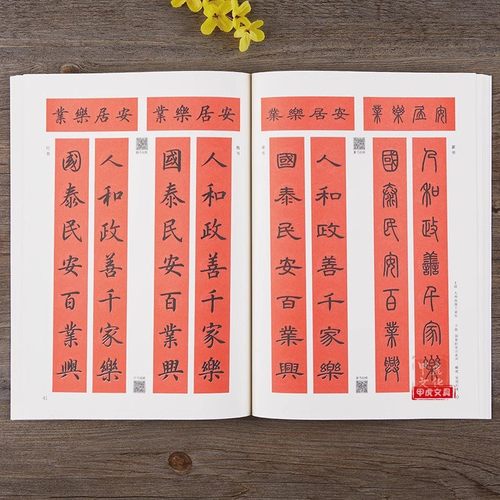 安居樂業
人和政善千家樂
國泰民安百業興
安居樂業
人和政善千家樂
國泰民安百業興
安居樂業
人和政善千家樂
國泰民安百業興
安居樂業
人和政善千家樂
國泰民安百業興
甲虎文具